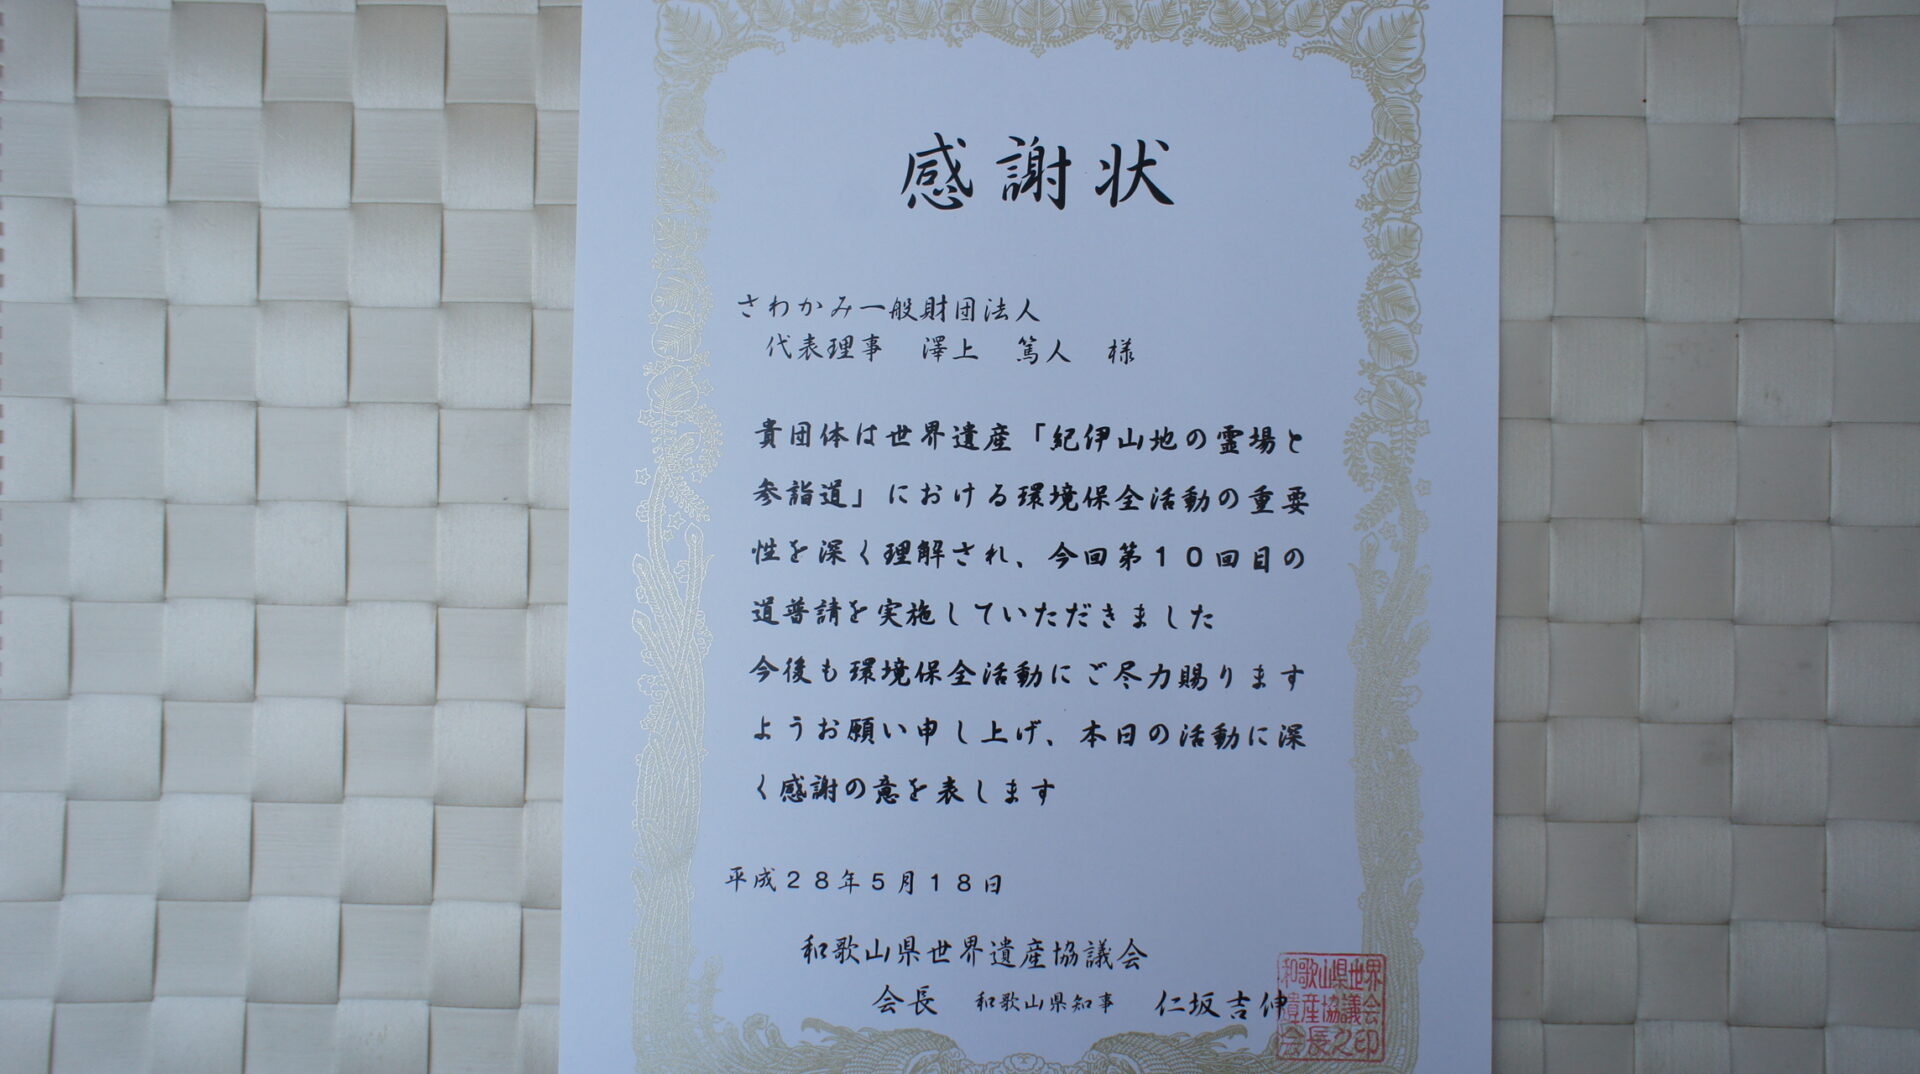 感謝状
さわかみ一般財団法人
代表理事 澤上 篤人 様
貴団体は世界遺産「紀伊山地の霊場と
参詣道」における環境保全活動の重要
性を深く理解され、今回第10回目の
道普請を実施していただきました
今後も環境保全活動にご尽力賜ります
ようお願い申し上げ、本日の活動に深
く感謝の意を表します
平成28年5月18日
和歌山県世界遺産協議会
会長 和歌山県知事 仁坂吉伸
和歌山県世界
遺産協議会
会長之印